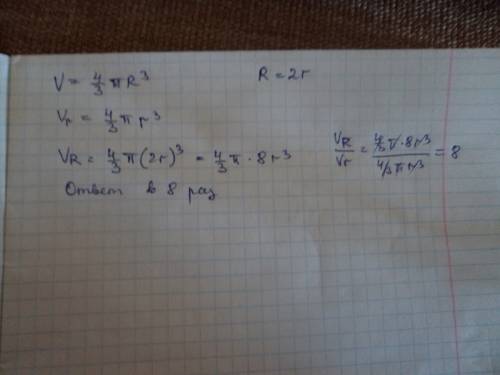 V = 4/3 π R³
R = 2r
Vr = 4/3 π r³
VR = 4/3 π (2r)³ = 4/3 π · 8r³
VR/Vr = (4/3 π · 8r³)/(4/3 π r³) = 8
Ответ в 8 раз